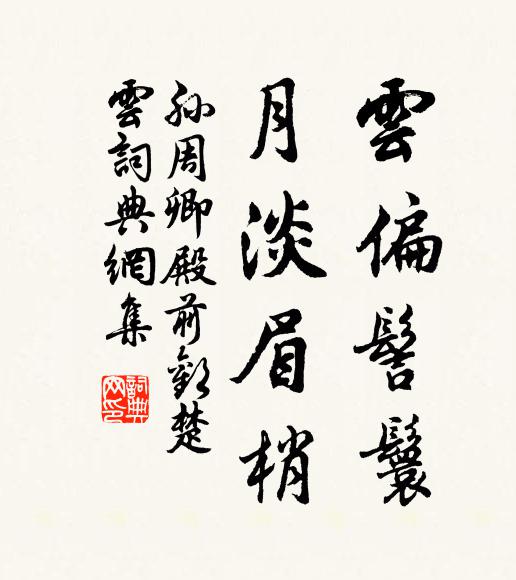 雲偏髻鬟
月淡眉梢
孫周卿殿前歡楚
雲詞典網集
詞典网印